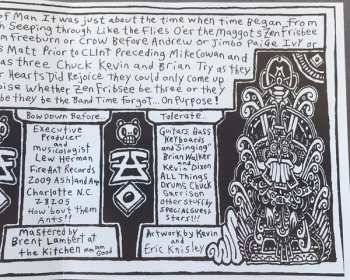 of Man It was just about the time when time Began from
h Seeping through Like the Flies O'er the Maggots Zen Frisbee
en Treeburn or Crow Before Andrew or Jimbo Paige Ivy or
s Matt Prior to Clint Preceding Mike Cowan and
as three Chuck Kevin and Brian Try as they
r Hearts Did Rejoice They could only come up
oise Whether Zen Frisbee be three or they
be they be the Band Time forgot... On Purpose!
Bow Down Before...
Executive
Producer
and
musicologist
Lew Herman
FireAnt Records
2009 Ashland Av
Charlotte N.C.
28205
How 'bout them
Ants!!
Tolerate...
Guitars, Bass
Keyboards
and "Singing"
Brian Walker
and
Kevin Dixon
ALL Things
Drums Chuck
Garrison
other stuff by
Special Guest
Stars!!!
Mastered by
Brent Lambert at
the Kitchen mm mm Good
Artwork by Kevin
and
Eric Knisley